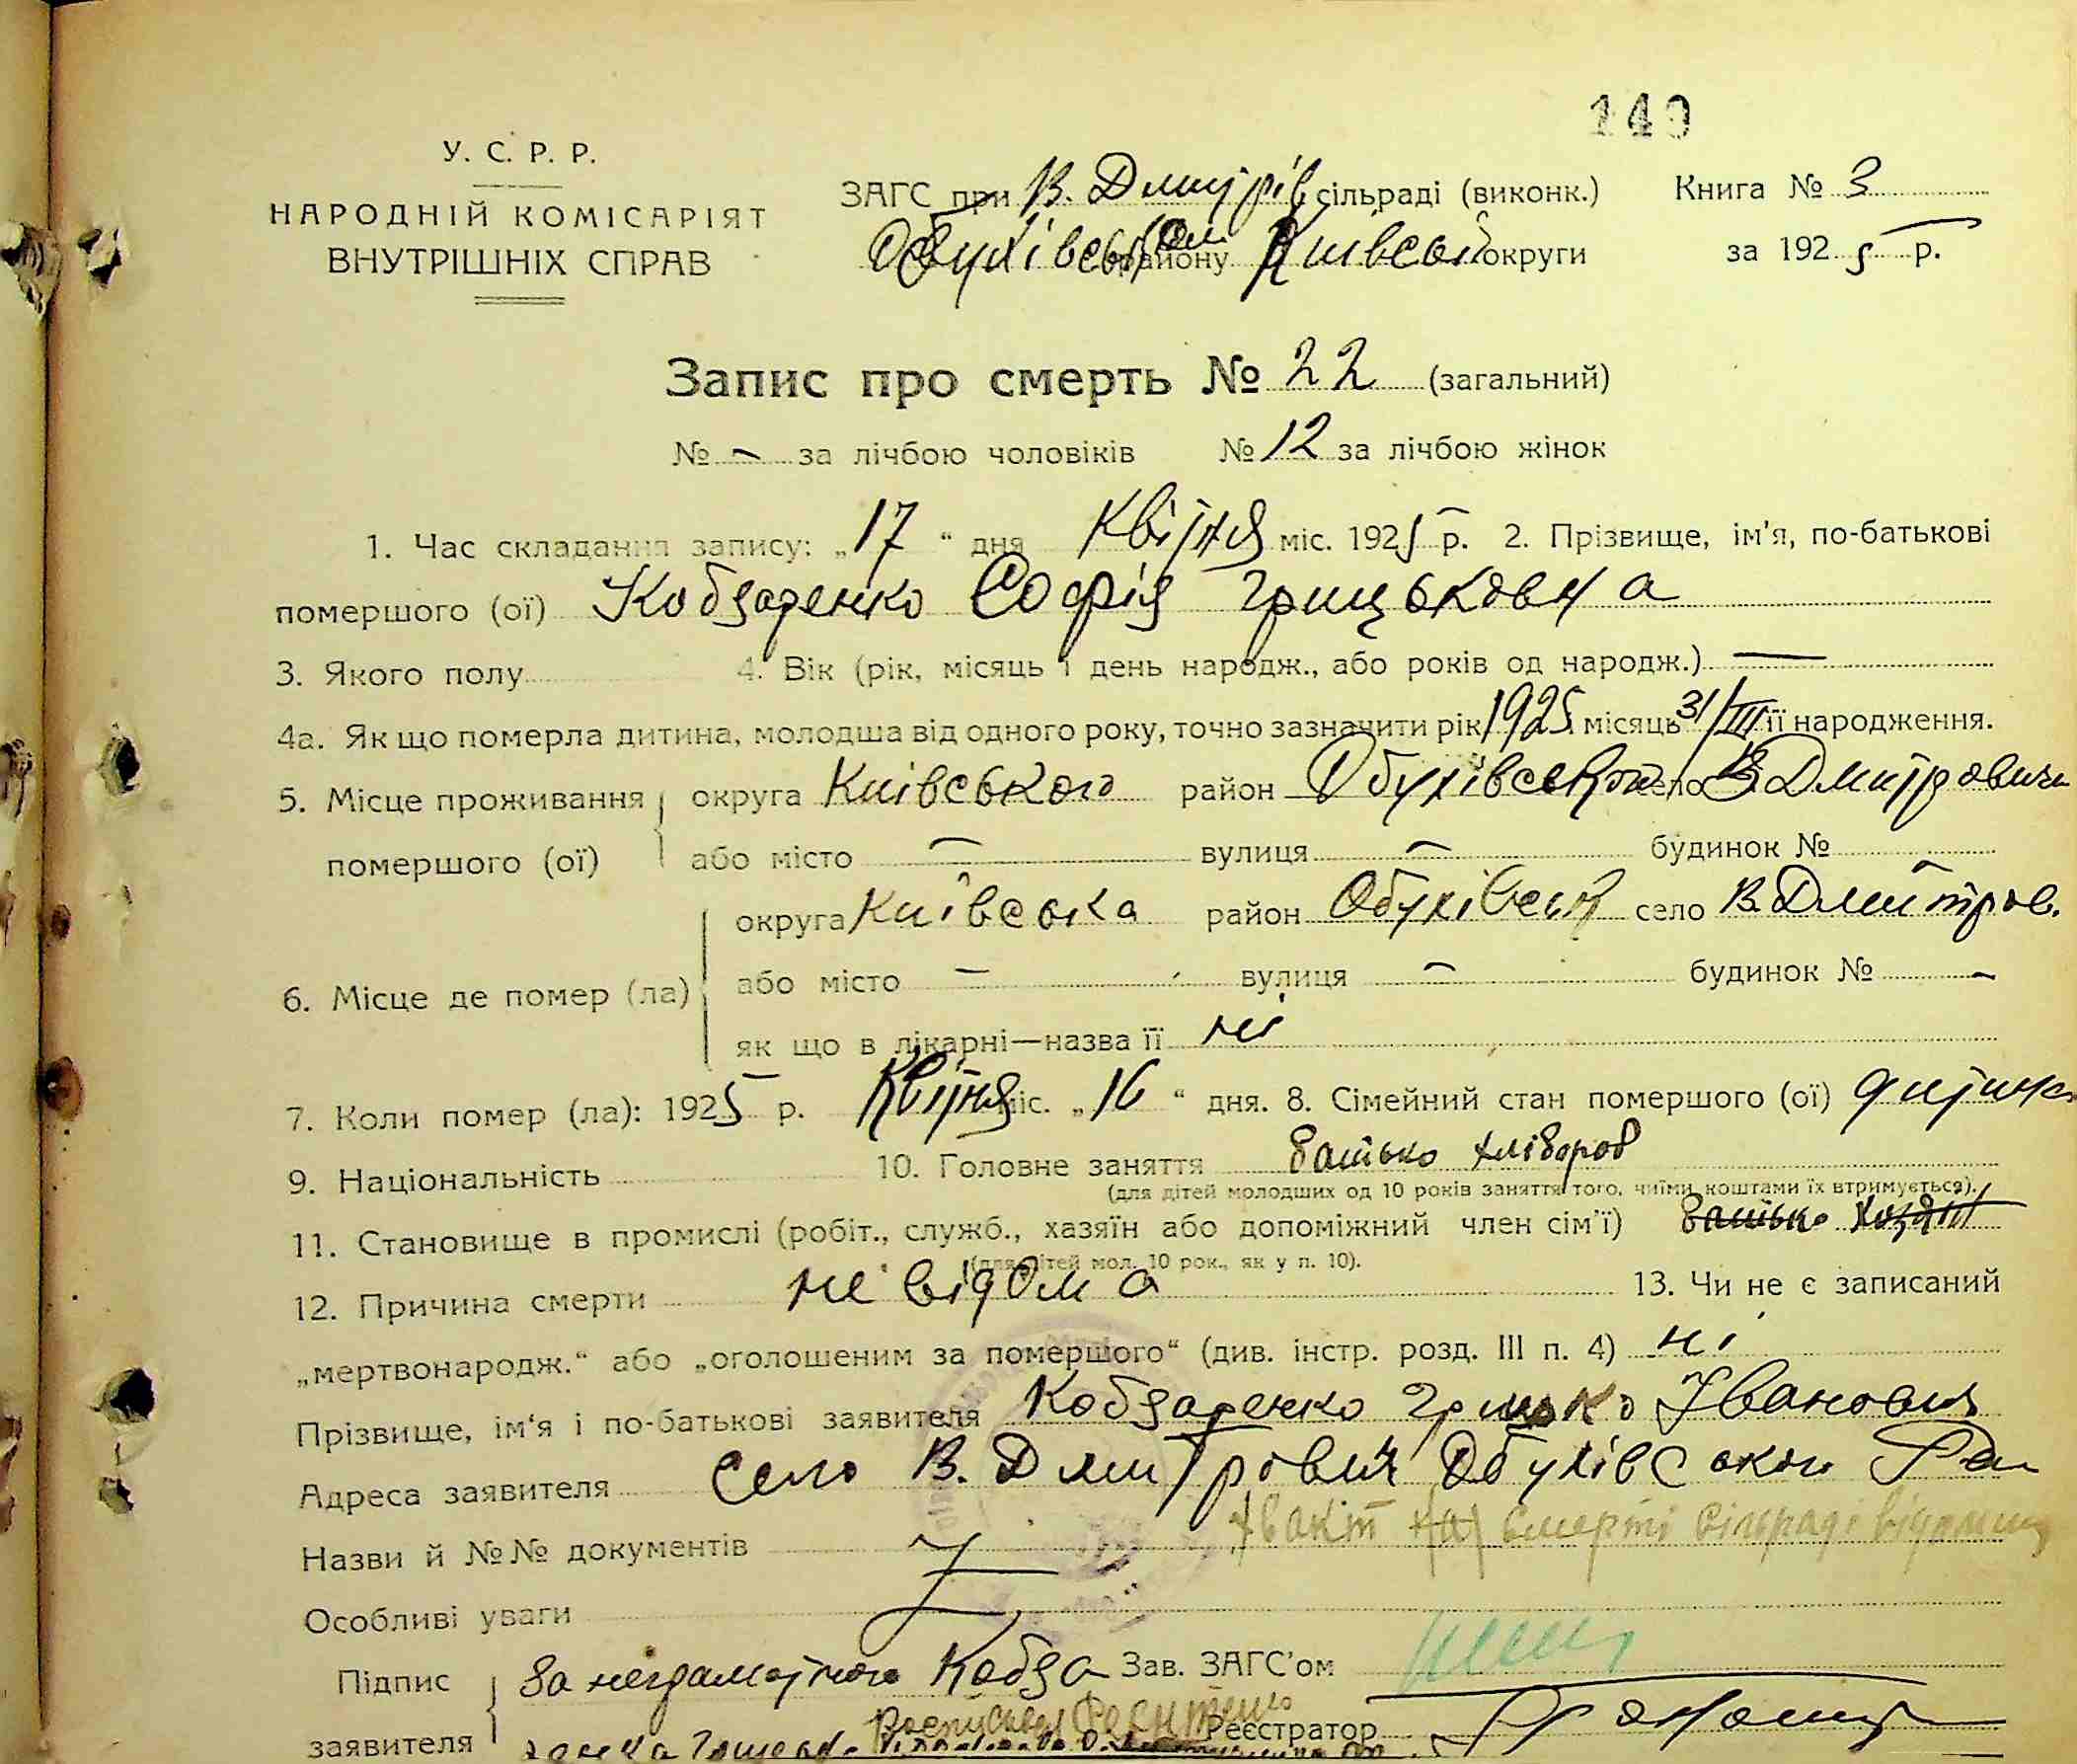 140
У. С. Р. Р.
НАРОДНІЙ КОМІСАРІЯТ
ВНУТРІШНІХ СПРАВ
ЗАГС при В. Дмитрів сільраді (виконк.) Книга № 3
Обухівськ району Київськ округи за 1925 р.
Запис про смерть № 22 (загальний)
№ — за лічбою чоловіків № 12 за лічбою жінок
1. Час складання запису: „17“ дня Квітня міс. 1925 р. 2. Прізвище, ім'я, по-батькові
помершого (ої) Кобзаренко Софія Грицьковна
3. Якого полу 4. Вік (рік, місяць і день народж., або років од народж.) —
4а. Як що померла дитина, молодша від одного року, точно зазначити рік 1925 місяць 31/III її народження.
5. Місце проживання округа Київського район Обухівськ село В Дмитровичи
помершого (ої) або місто — вулиця — будинок № —
округа Київська район Обухівськ село В. Дмитров.
6. Місце де помер (ла) або місто — вулиця — будинок № —
як що в лікарні—назва її ні
7. Коли помер (ла): 1925 р. Квітня міс. „16“ дня. 8. Сімейний стан помершого (ої) дитина
9. Національність 10. Головне заняття батько хлібороб
(для дітей молодших од 10 років заняття того, чиїми коштами їх втримується).
11. Становище в промислі (робіт., служб., хазяїн або допоміжний член сім'ї) батько хозяїн
(для дітей мол. 10 рок., як у п. 10).
12. Причина смерти не відома 13. Чи не є записаний
„мертвонародж.“ або „оголошеним за помершого“ (див. інстр. розд. III п. 4) ні
Прізвище, ім'я і по-батькові заявителя Кобзаренко Грицько Іванович
Адреса заявителя село В. Дмитрович Обухівськог Ра
Назви й №№ документів — факт смерті сільраді відомий
Особливі уваги —
Підпис За неграмотного Кобза Зав. ЗАГС'ом
заявителя ренка Реєстратор